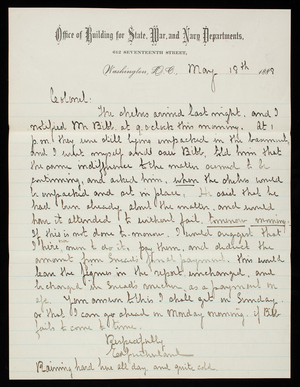 Office of Building for State, War, and Navy Departments.
612 SEVENTEENTH STREET,
Washington, D.C., May 18th 1888
Colonel:
The clocks arrived last night, and I
notified Mr. Bibb at 9 o'clock this morning. At 1
p.m. they were still being unpacked in the basement,
and I went myself and saw Bibb, told him that
the same indifference to the matter seemed to be
continuing, and asked him, when the clocks would
be unpacked and set in place. He said that he
had been already about the matter, and would
have it attended to without fail tomorrow morning.
If this is not done to-morrow, I would suggest that
I hire men to do it, pay them, and deduct the
amount from final payment. This would
leave the figures in the report unchanged, and
be charged in account, as a payment on
a/c. Your answer to this I shall get on Sunday.
so that I can go ahead on Monday morning, if Bibb
fails to come to time.
Respectfully
Raining hard here all day and quite cold.